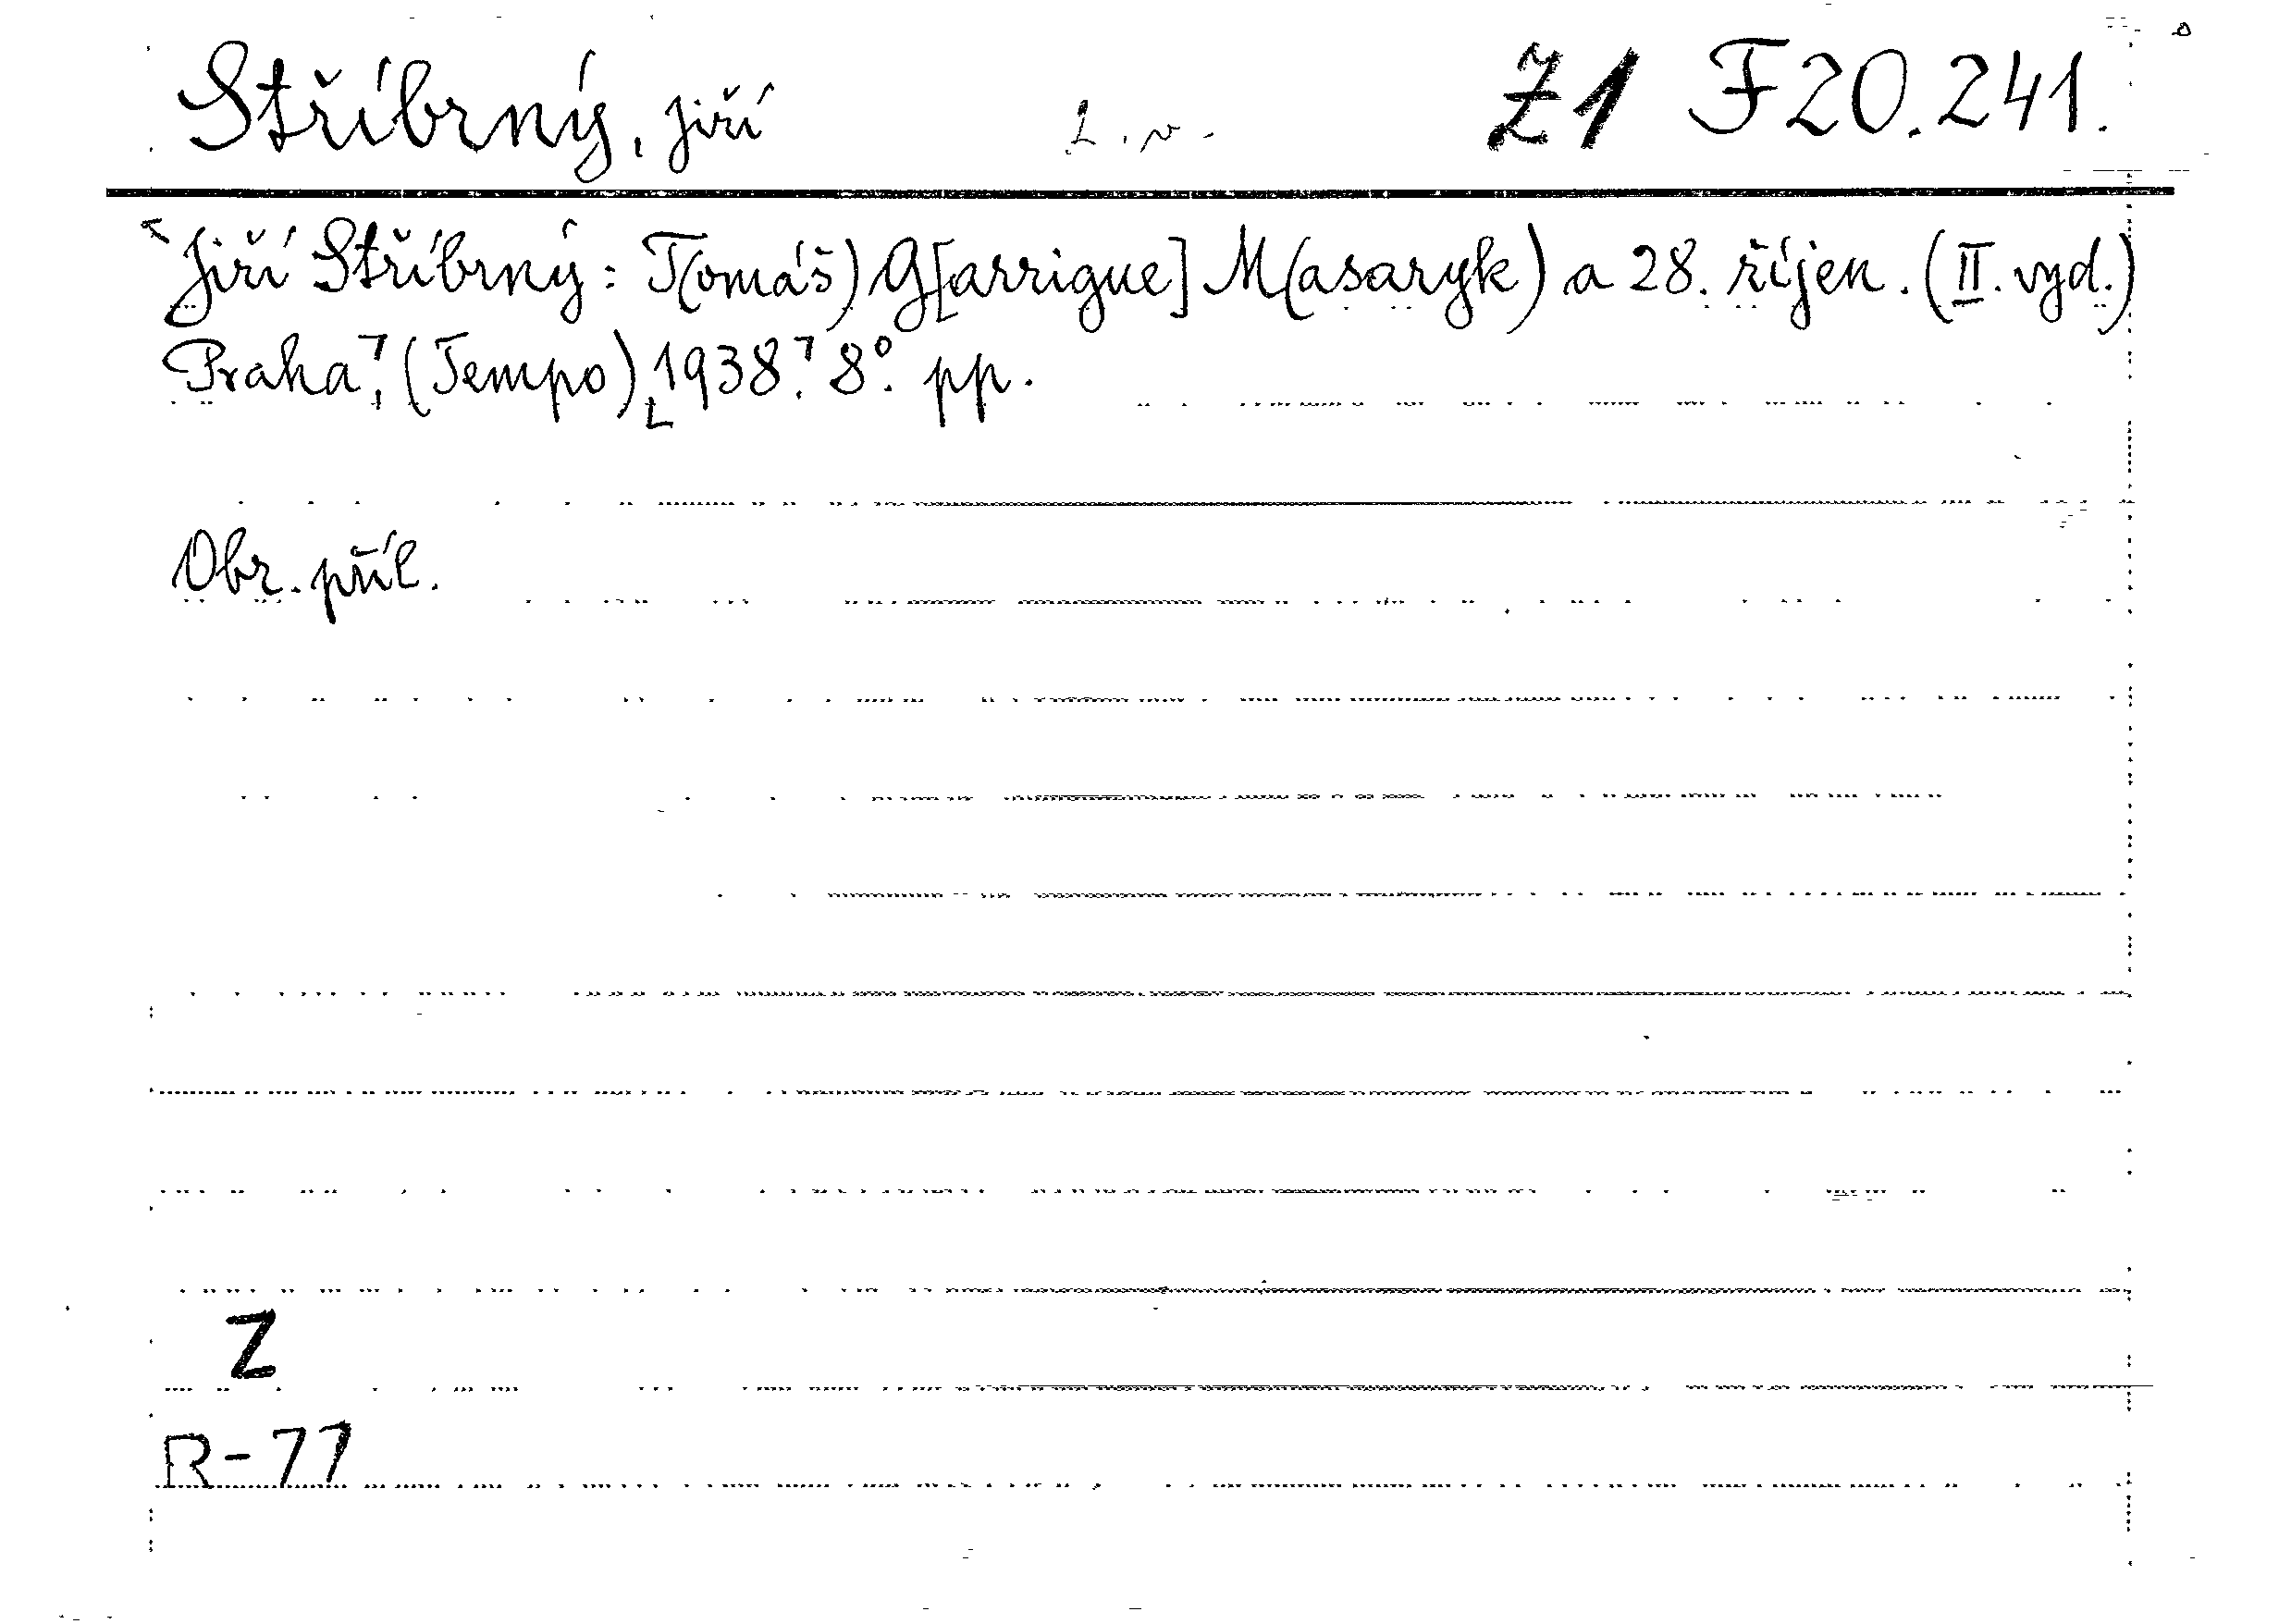 Stříbrný, Jiří 2.v. Z1 F20.241.
Jiří Stříbrný: T(omáš) G[arrigue] M(asaryk) a 28. říjen. (II. vyd.)
Praha, (Tempo) 1938. 8°. pp.
Obr. příl.
Z
R-77